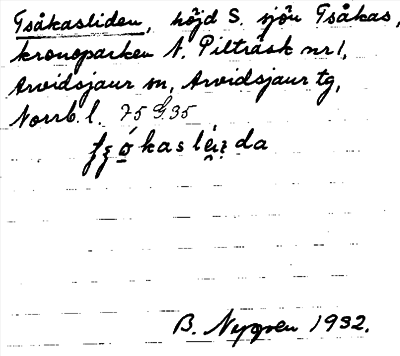 Tsåkasliden, höjd S. sjön Tsåkas,
kronoparken N. Pilträsk nr 1,
Arvidsjaur sn, Arvidsjaur tg,
Norrb. l. 25 G 35
B. Nygren 1932.